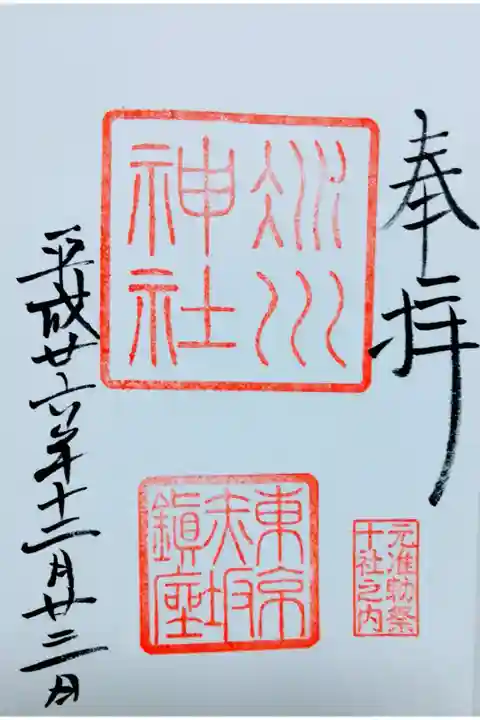 奉拝
氷川
神社
元准勅祭
十社之内
東京
赤坂
鎮座
平成廿六年十二月廿三日